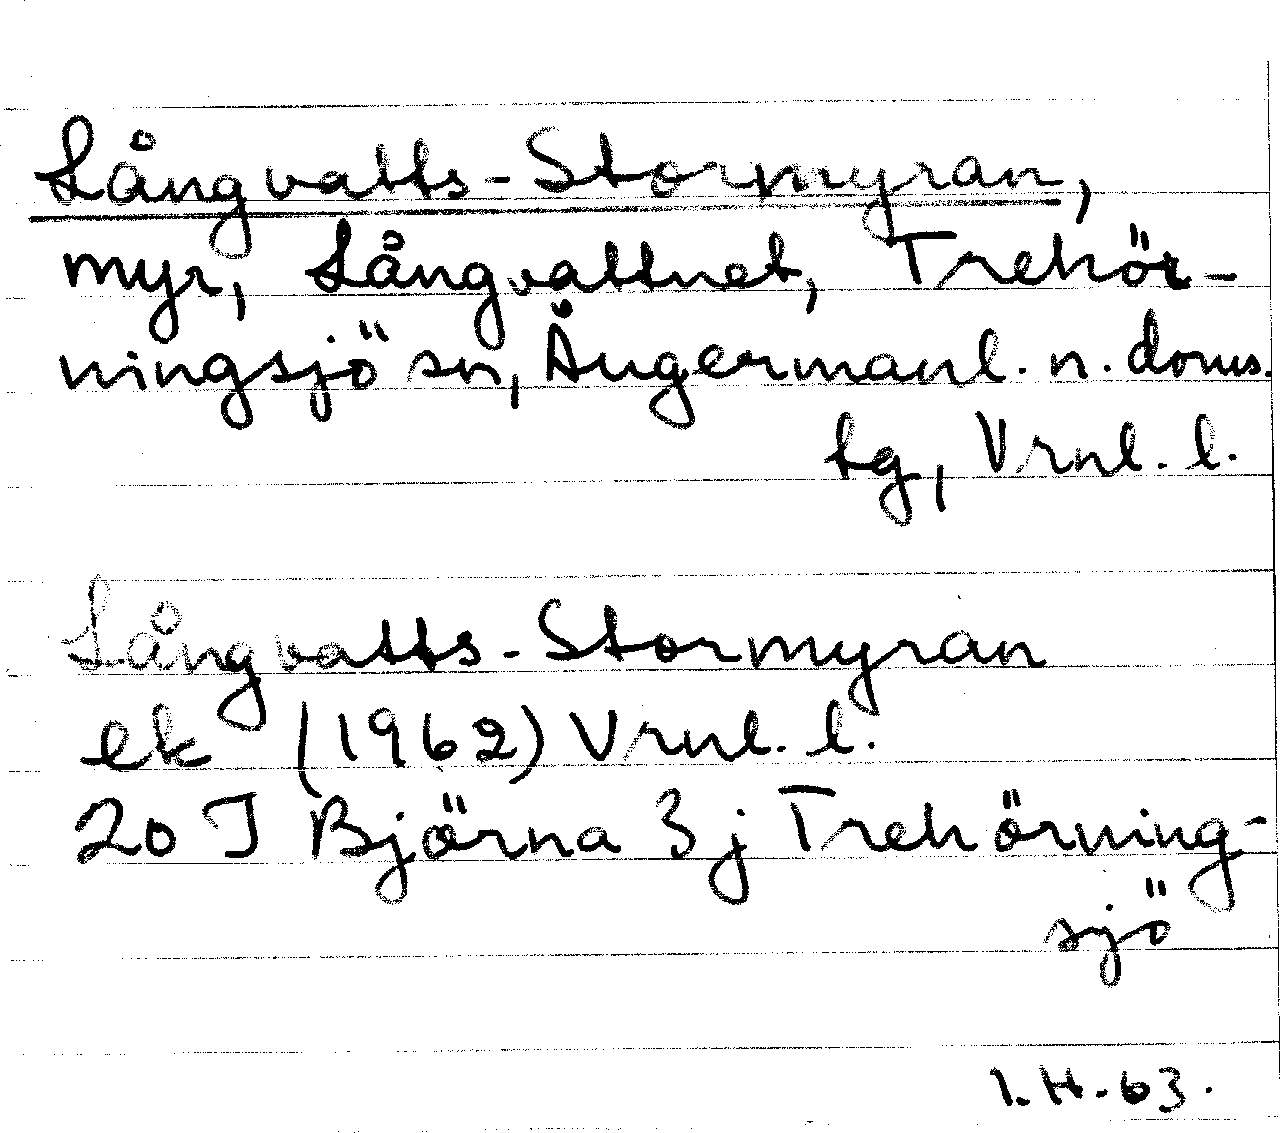 Långvatts-Stormyran,
myr, Långvattnet, Trehör-
ningsjö sn, Ångermanl. n. doms.
tg, Vrnl. l.
Långvatts-Stormyran
ek (1962) Vrnl. l.
20 I Björna 3j Trehörning-
sjö
I.H.63.